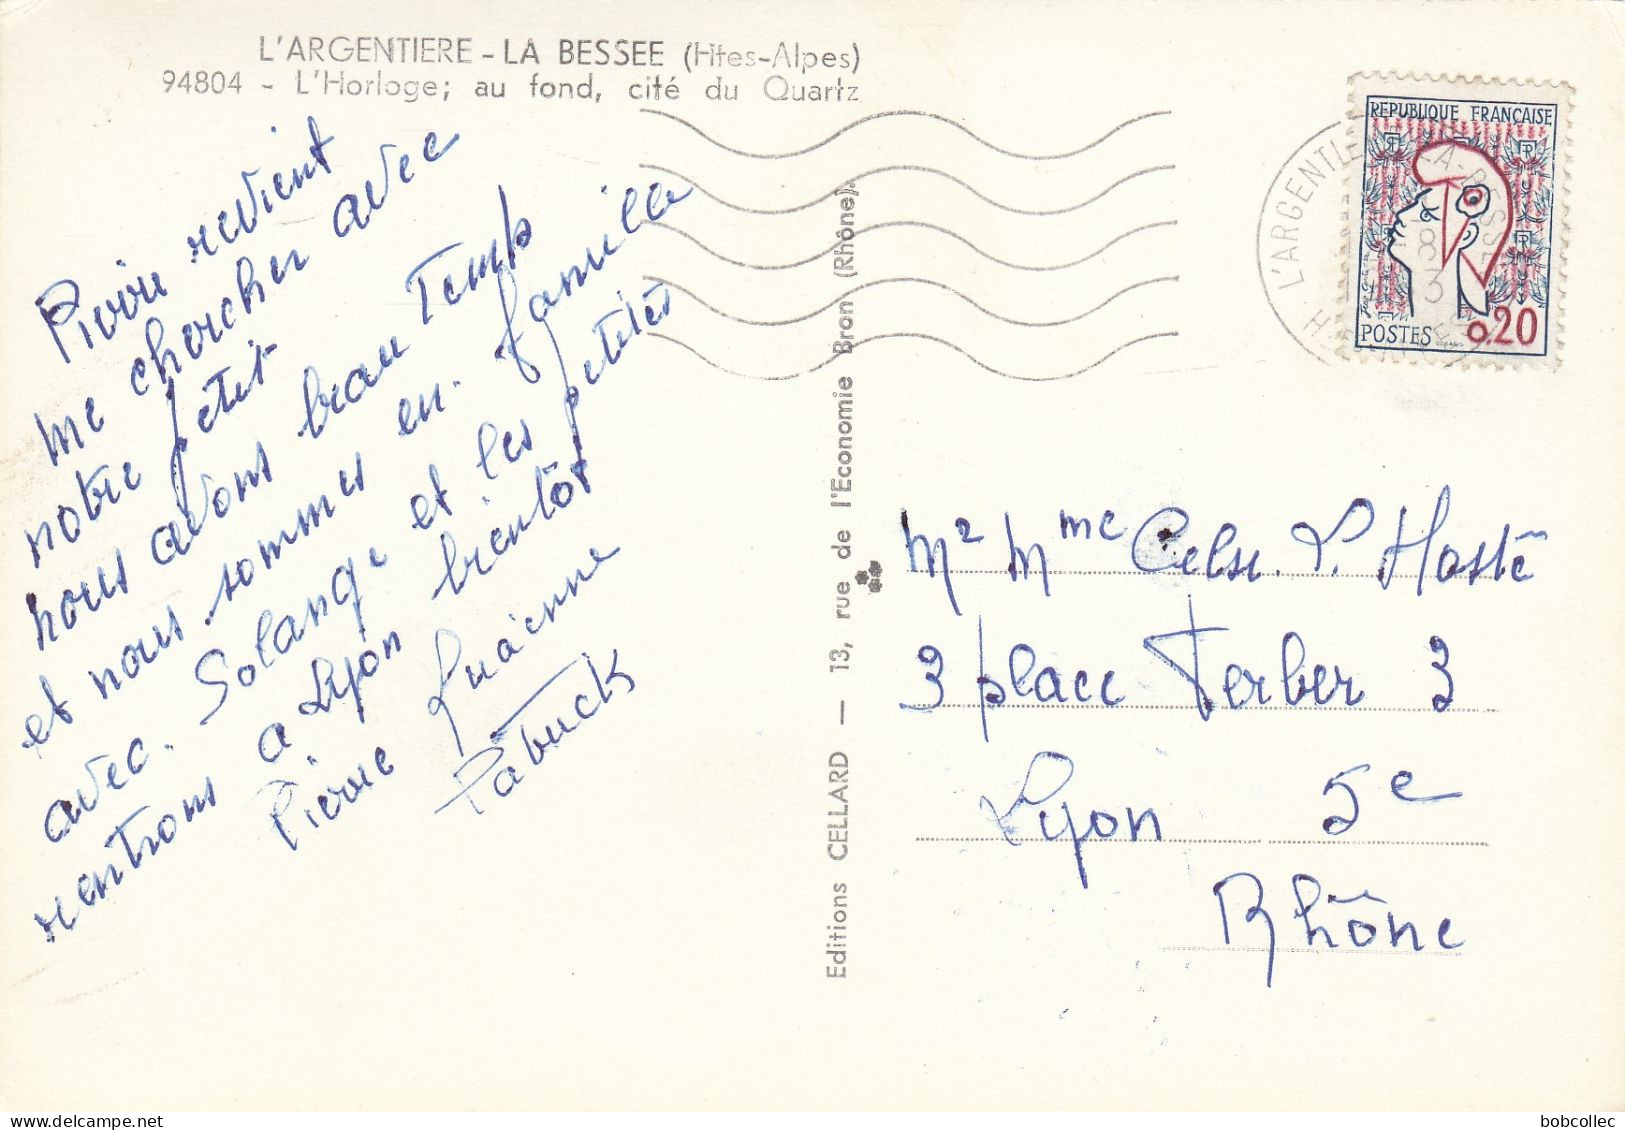 L'ARGENTIERE - LA BESSEE (Htes-Alpes)
94804 - L'Horloge; au fond, cité du Quartz
Pierre revient
me chercher avec
notre petit
nous avons beau Temps
et nous sommes en famille
avec. Solange et les petites
rentrons a Lyon bientôt
Pierre
Editions CELLARD — 13, rue de l'Economie Bron (Rhône).
REPUBLIQUE FRANÇAISE
POSTES 0.20
L'ARGENTIE LA-BESSEE
Mr Mme Celse. L. Hoste
3 place Terber 3
Lyon 5e
Rhône
bobcollec